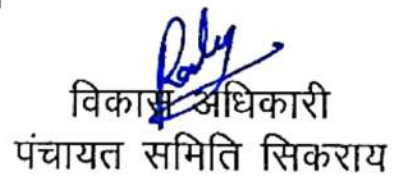 विकास अधिकारी
पंचायत समिति सिकराय